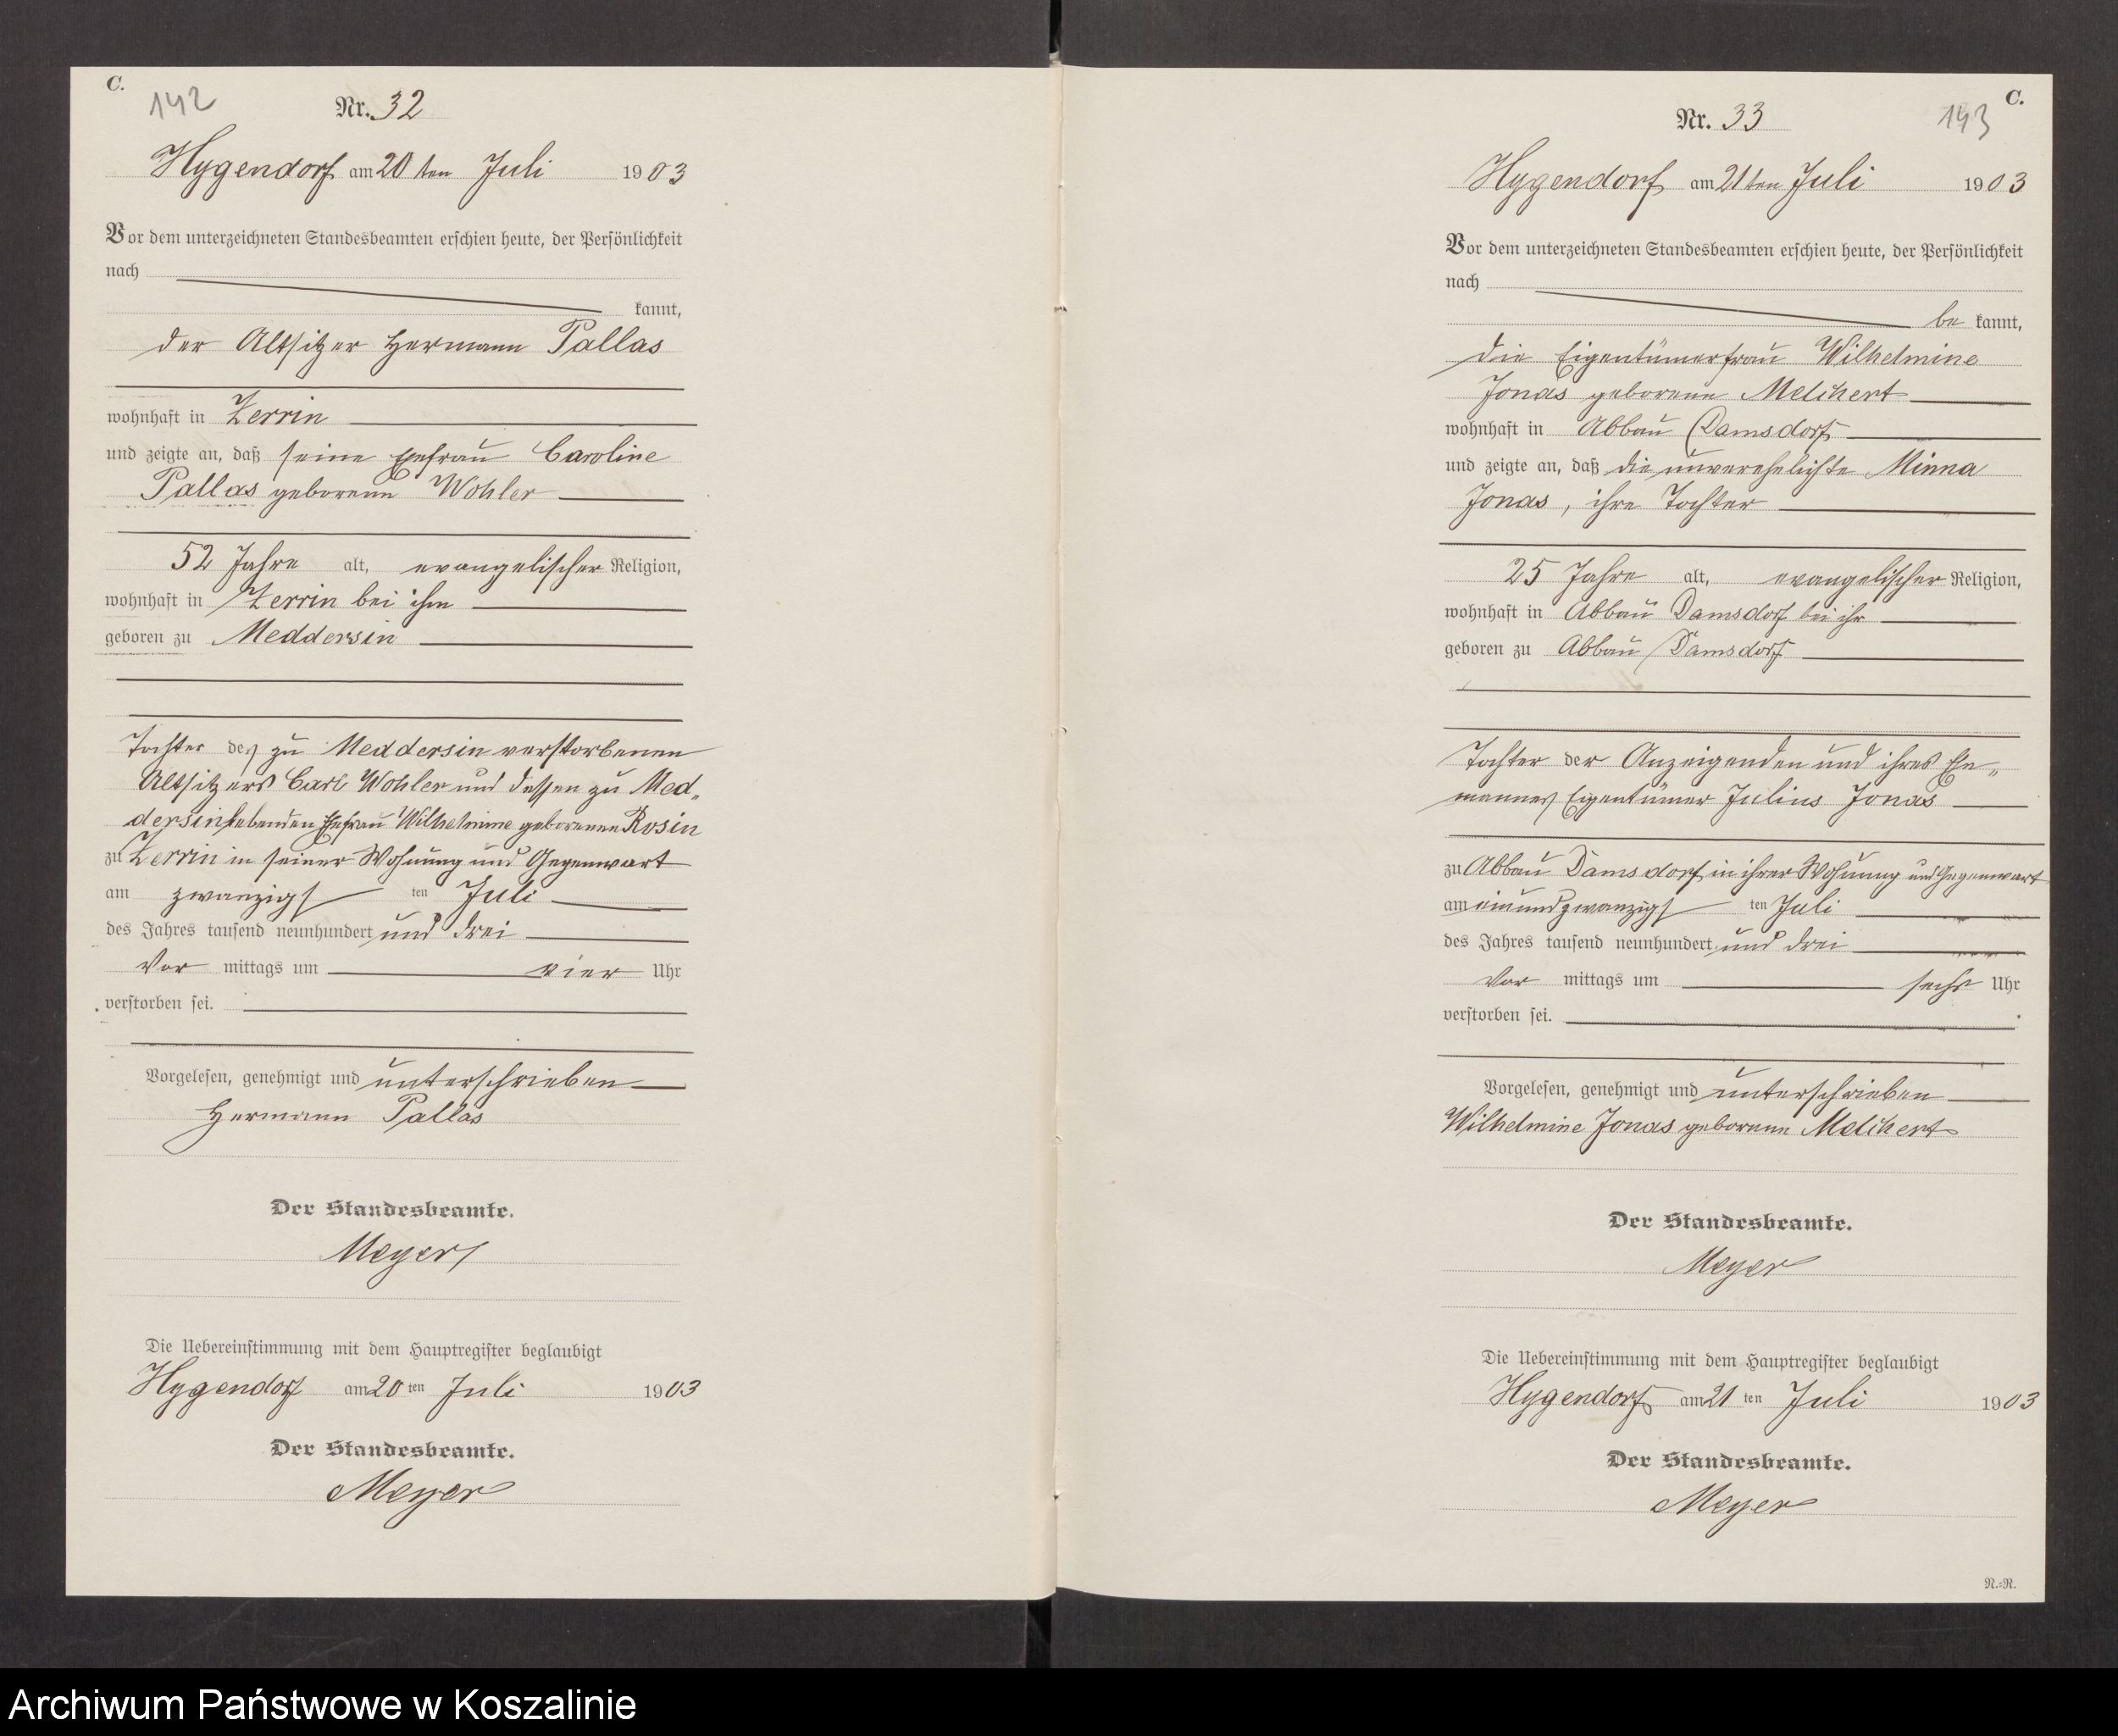 C.
142
Nr. 32
Hygendorf am 20ten Juli 1903
Vor dem unterzeichneten Standesbeamten erschien heute, der Persönlichkeit
nach
kannt,
der Altsitzer Hermann Pallas
wohnhaft in Zerrin
und zeigte an, daß seine Ehefrau Caroline
Pallas geborene Wohler
52 Jahre alt, evangelischer Religion,
wohnhaft in Zerrin bei ihm
geboren zu Meddersin
Tochter des zu Meddersin verstorbenen
Altsitzers Carl Wohler und dessen zu Med„
dersin lebenden Ehefrau Wilhelmine geborenen Rosin
zu Zerrin in seiner Wohnung und Gegenwart
am zwanzigsten Juli
des Jahres tausend neunhundert und drei
Vor mittags um vier Uhr
verstorben sei.
Vorgelesen, genehmigt und unterschrieben
Hermann Pallas
Der Standesbeamte.
Meyer
Die Uebereinstimmung mit dem Hauptregister beglaubigt
Hygendorf am 20ten Juli 1903
Der Standesbeamte.
Meyer
C.
143
Nr. 33
Hygendorf am 21ten Juli 1903
Vor dem unterzeichneten Standesbeamten erschien heute, der Persönlichkeit
nach
be kannt,
die Eigentümerfrau Wilhelmine
Jonas geborene Melchert
wohnhaft in Abbau Damsdorf
und zeigte an, daß die unverehelichte Minna
Jonas, ihre Tochter
25 Jahre alt, evangelischer Religion,
wohnhaft in Abbau Damsdorf bei ihr
geboren zu Abbau Damsdorf
Tochter der Anzeigenden und ihres Ehe„
mannes Eigentümer Julius Jonas
zu Abbau Damsdorf in ihrer Wohnung und Gegenwart
am einundzwanzigsten Juli
des Jahres tausend neunhundert und drei
Vor mittags um sechs Uhr
verstorben sei.
Vorgelesen, genehmigt und unterschrieben
Wilhelmine Jonas geborene Melchert
Der Standesbeamte.
Meyer
Die Uebereinstimmung mit dem Hauptregister beglaubigt
Hygendorf am 21ten Juli 1903
Der Standesbeamte.
Meyer
N.-N.
Archiwum Państwowe w Koszalinie